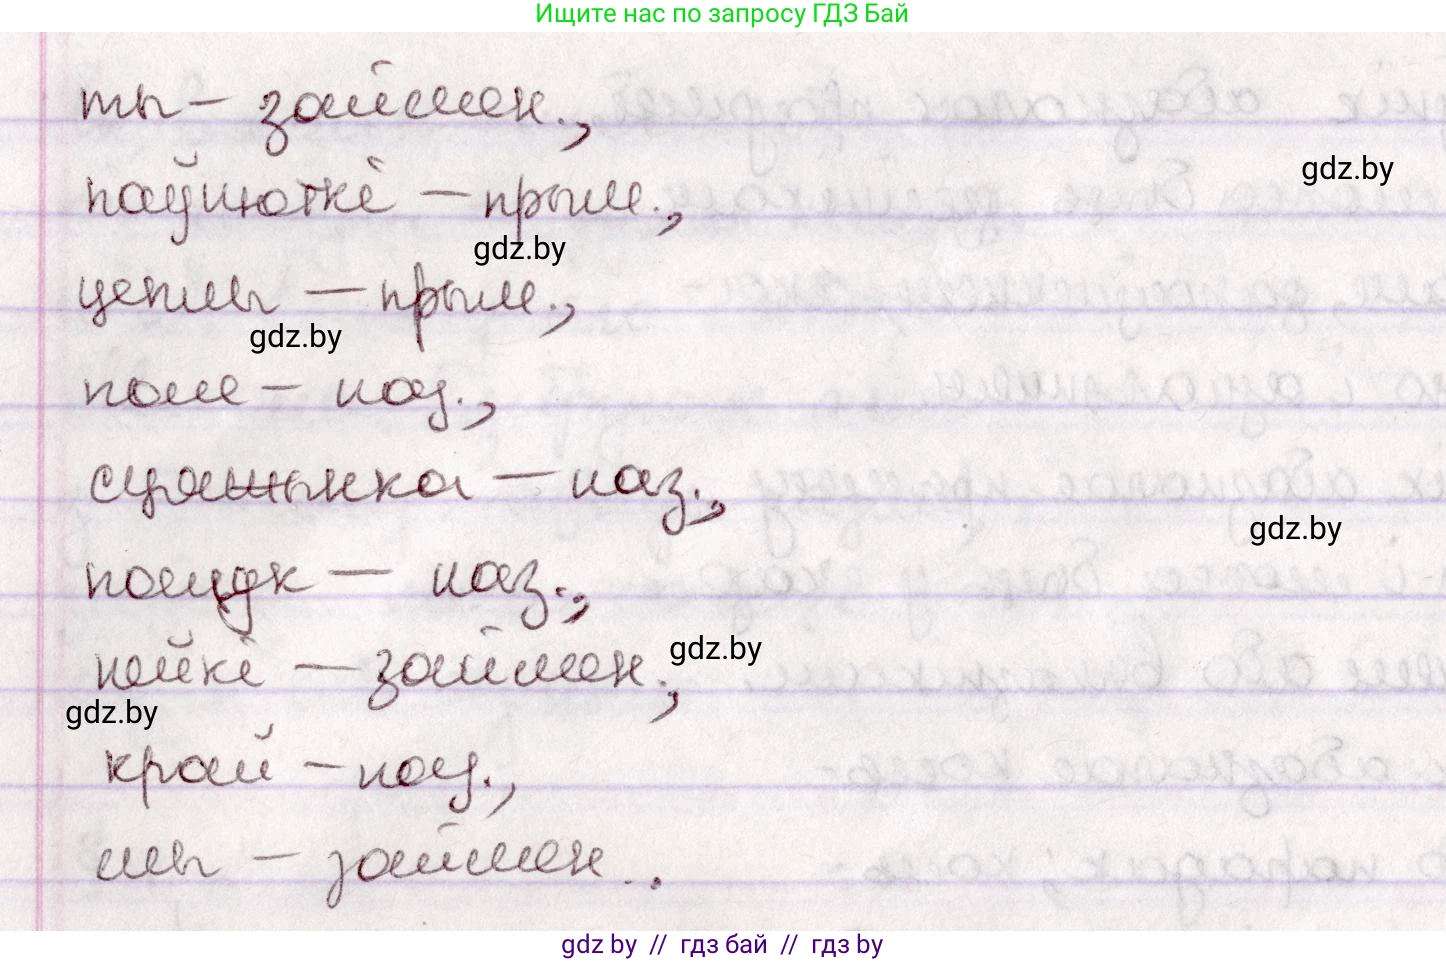 Ищите нас по запросу ГДЗ Бай
ты – займен.,
gdz.by
паўшюткі – прым.,
gdz.by
цеплы – прым.,
gdz.by
поле – наз.,
сцяжынка – наз.,
gdz.by
пошук – наз.,
нейкі – займен.,
gdz.by
gdz.by
край – наз.,
мы – займен..
gdz by // гдз бай // гдз by